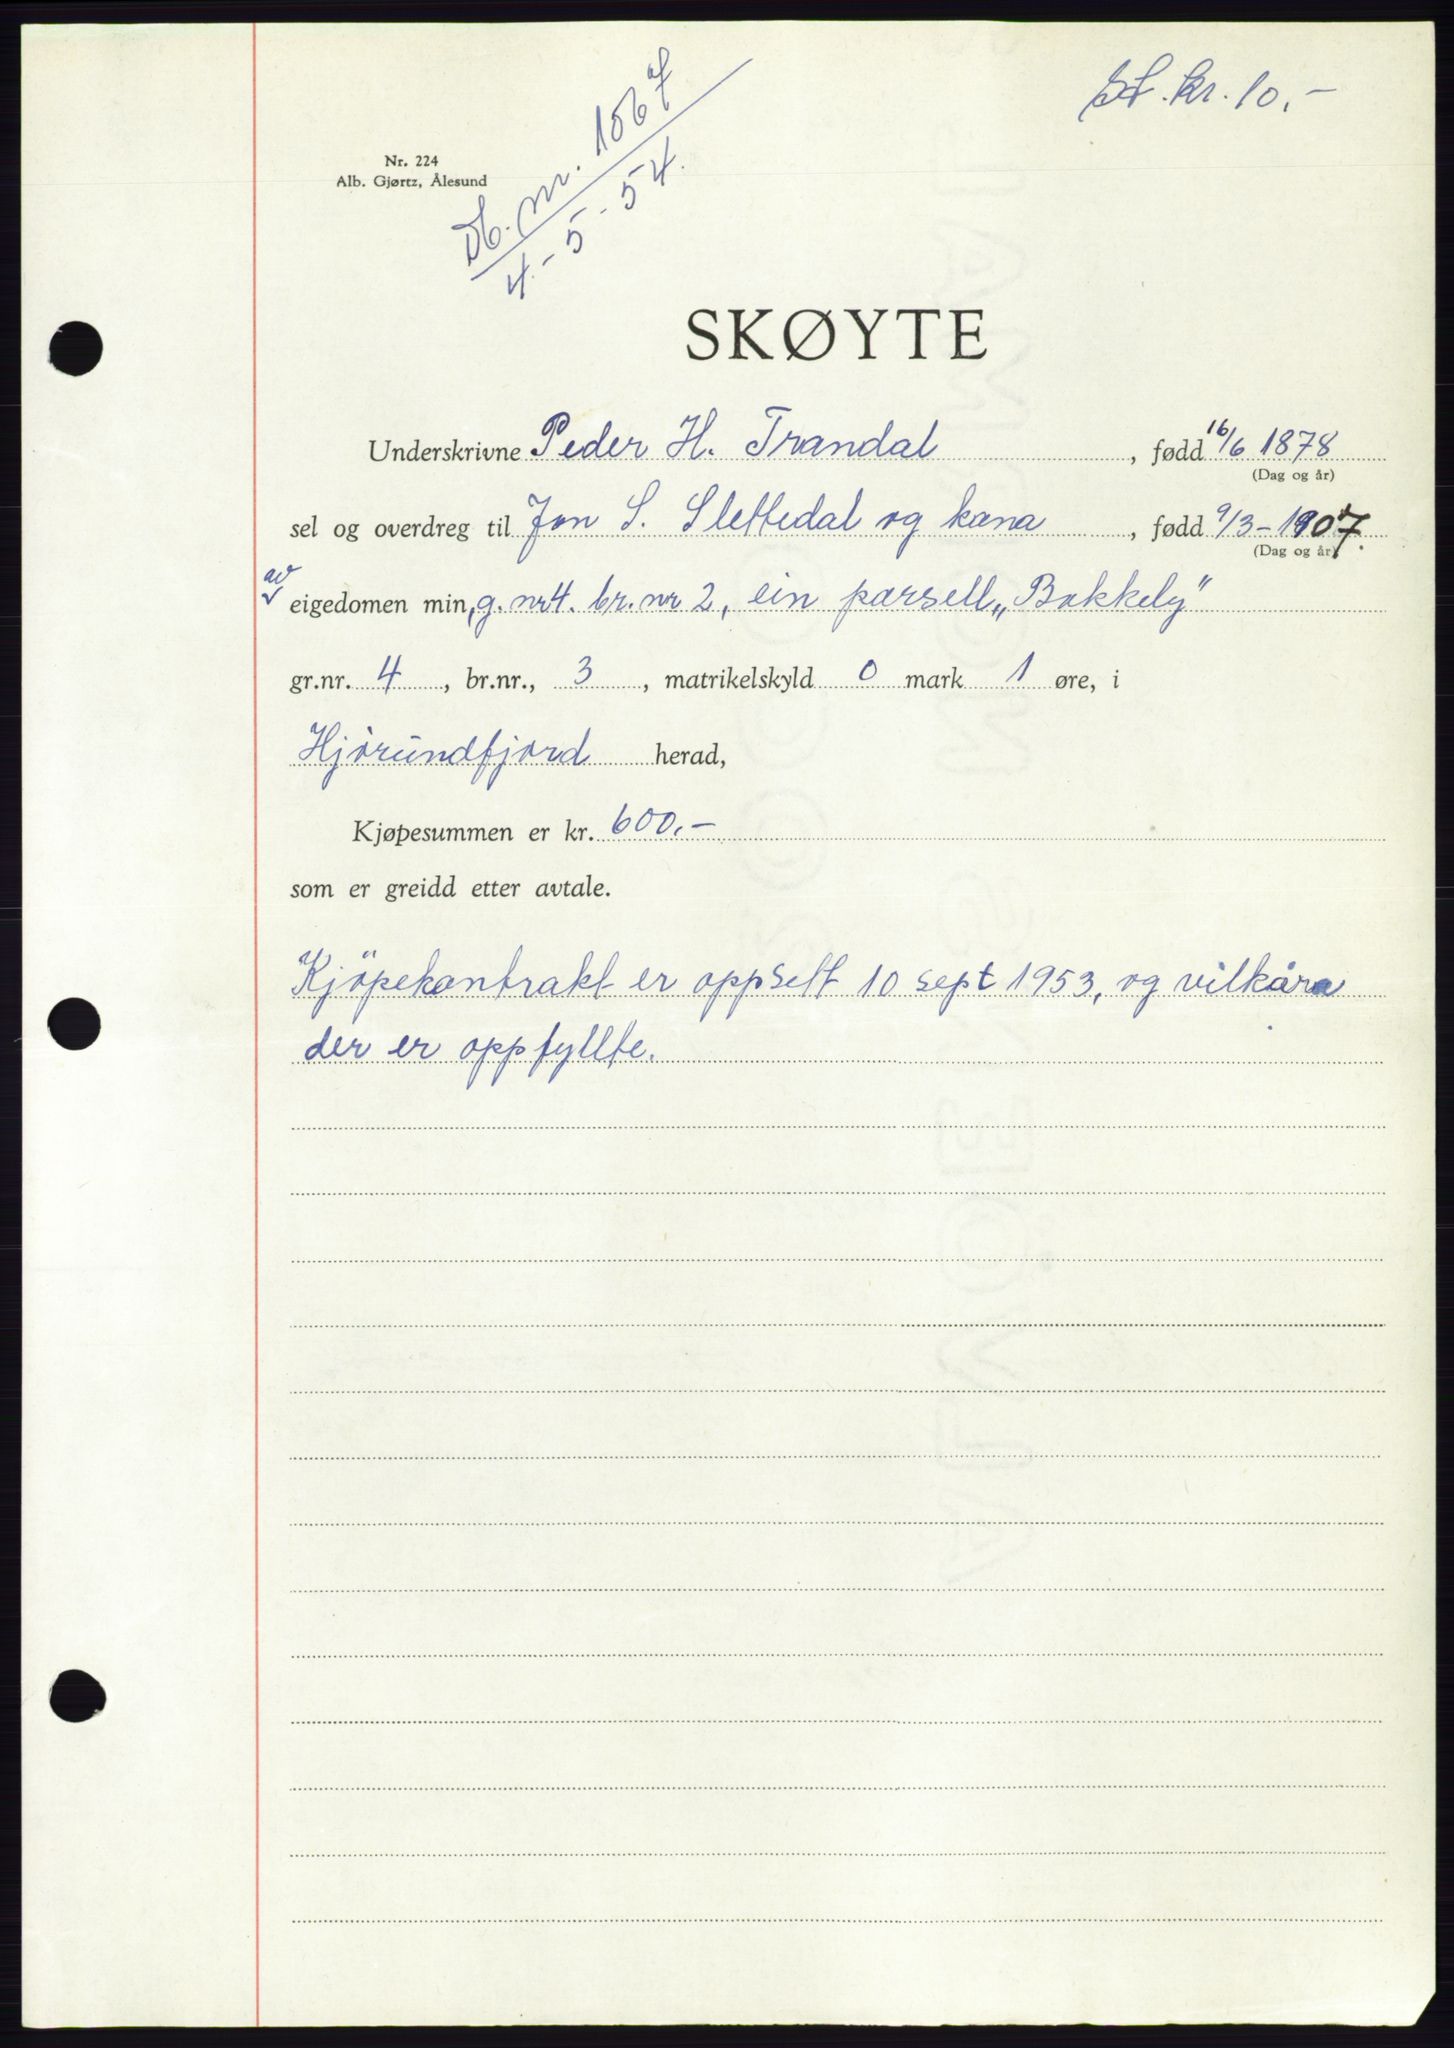 St. kr. 10.-
Nr. 224
Alb. Gjørtz, Ålesund
Db. nr. 1067
4.-5-54.
SKØYTE
Underskrivne Peder H. Trandal, fødd 16/6 1878
(Dag og år)
sel og overdreg til Jon S. Slettedal og kona, fødd 9/3-1907.
(Dag og år)
av
eigedomen min, g. nr 4. br. nr 2, ein parsell „Bakkely"
gr.nr. 4, br.nr., 3, matrikelskyld 0 mark 1 øre, i
Hjörundfjord herad,
Kjøpesummen er kr. 600.-
som er greidd etter avtale.
Kjöpekontrakt er oppsett 10 sept 1953, og vilkåra
der er oppfyllte.